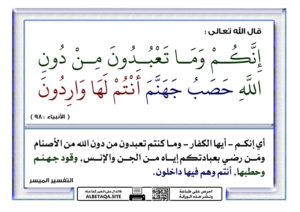 قال الله تعالى :
إِنَّكُمْ وَمَا تَعْبُدُونَ مِنْ دُونِ
اللَّهِ حَصَبُ جَهَنَّمَ أَنْتُمْ لَهَا وَارِدُونَ
( الأنبياء : ٩٨ )
أي إنكم - أيها الكفار - وما كنتم تعبدون من دون الله من الأصنام
ومَن رضي بعبادتكم إياه من الجن والإنس، وقود جهنم
وحطبها، أنتم وهم فيها داخلون.
التفسير الميسر
ALBETAQA.SITE
احرص على طباعة
ونشر هذه الورقة